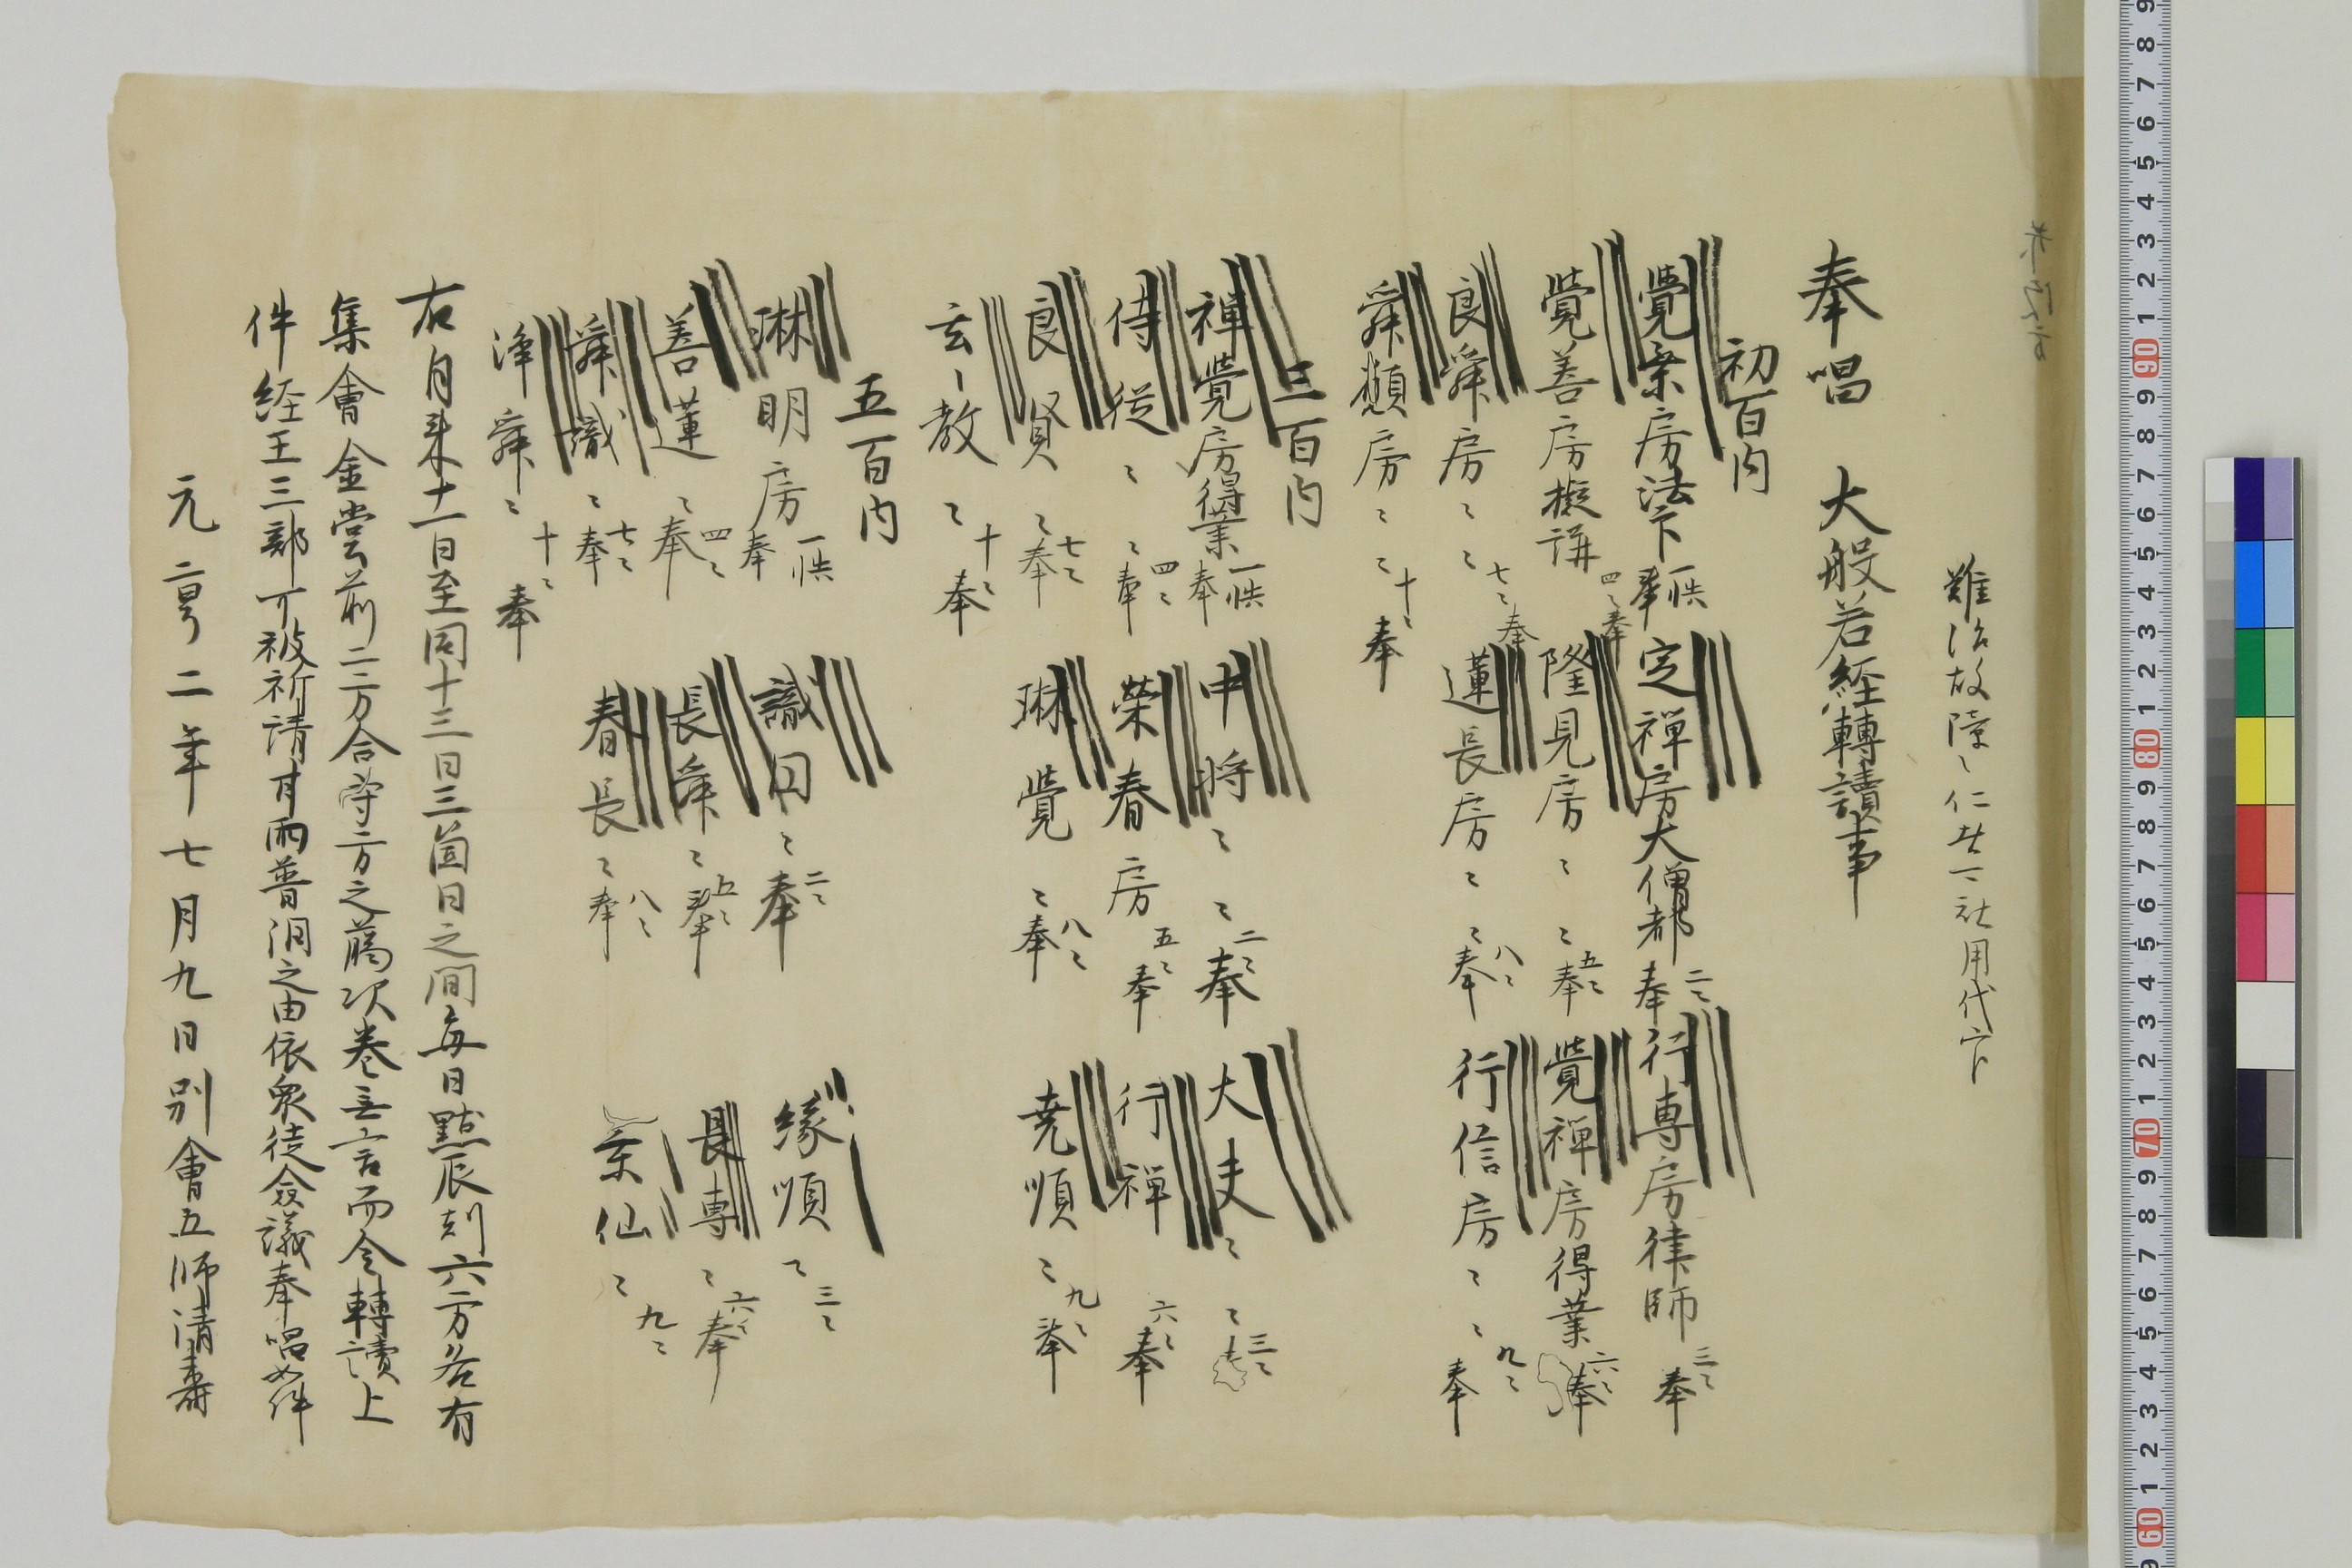 難治故障之仁者一社用代官
奉唱 大般若経轉讀事
初百内
覺桼房法下 一帙 奉 定禅房大僧都 二ゝ 奉 行専房律師 三ゝ 奉
覺善房擬講 四ゝ 奉 隆見房ゝゝ 五ゝ 奉 覺禅房得業 六ゝ 奉
良舜房ゝゝ 七ゝ 奉 蓮長房ゝゝ 八ゝ 奉 行信房ゝゝ 九ゝ 奉
舜願房ゝゝ 十ゝ 奉
三百内
禅覺房得業 一帙 奉 中将ゝゝ 二ゝ 奉 大夫ゝゝ 三ゝ
侍従ゝゝ 四ゝ 奉 榮春房 五ゝ 奉 行禅 六ゝ 奉
良賢ゝ 七ゝ 奉 琳覺ゝ 八ゝ 奉 尭順ゝ 九ゝ 奉
玄ー教ゝ 十ゝ 奉
五百内
琳明房 一帙 奉 識円ゝ 二ゝ 奉 縁順ゝ 三ゝ
善蓮ゝ 四ゝ 奉 長舜ゝ 五ゝ 奉 長専ゝ 六ゝ 奉
舜識ゝ 七ゝ 奉 春長ゝ 八ゝ 奉 仙ゝ 九ゝ
浄舜ゝ 十ゝ 奉
右自来十一日至同十三日三箇日之間毎日點辰剋六方各有
集會金堂前二方合学方之﨟次巻無言而令轉讀上
件経王三部可被祈請甘雨普潤之由依衆徒僉議奉唱如件
元亨二年七月九日別會五師清壽